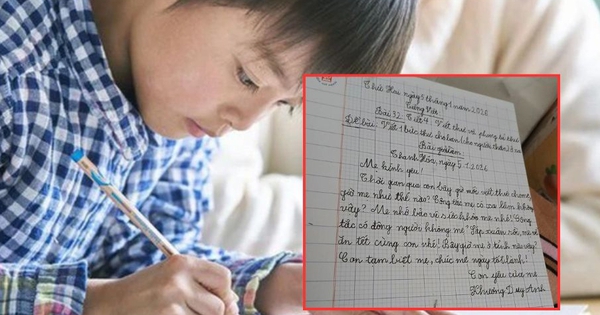 Thứ Hai ngày 5 tháng 1 năm 2026
Tiếng Việt
Bài 32: Tiết 4: Viết thư và phong bì thư
Đề bài: Viết 1 bức thư cho bạn (cho người thân) ở xa
Bài giải làm
Thanh Hóa, ngày 5-1-2026
Mẹ kính yêu!
Thời gian qua con bây giờ mới viết thư cho mẹ,
giờ mẹ như thế nào? Công tác mẹ có xa lắm không
vậy? Mẹ nhớ bảo vệ sức khỏe mẹ nhé! Công
tác có đông người không mẹ? Sắp xuân rồi, mẹ về
ăn tết cùng con nhé! Bây giờ mẹ ở tỉnh nào vậy?
Con tạm biệt mẹ, chúc mẹ ngày tốt lành!
Con yêu của mẹ
Khương Duy Anh